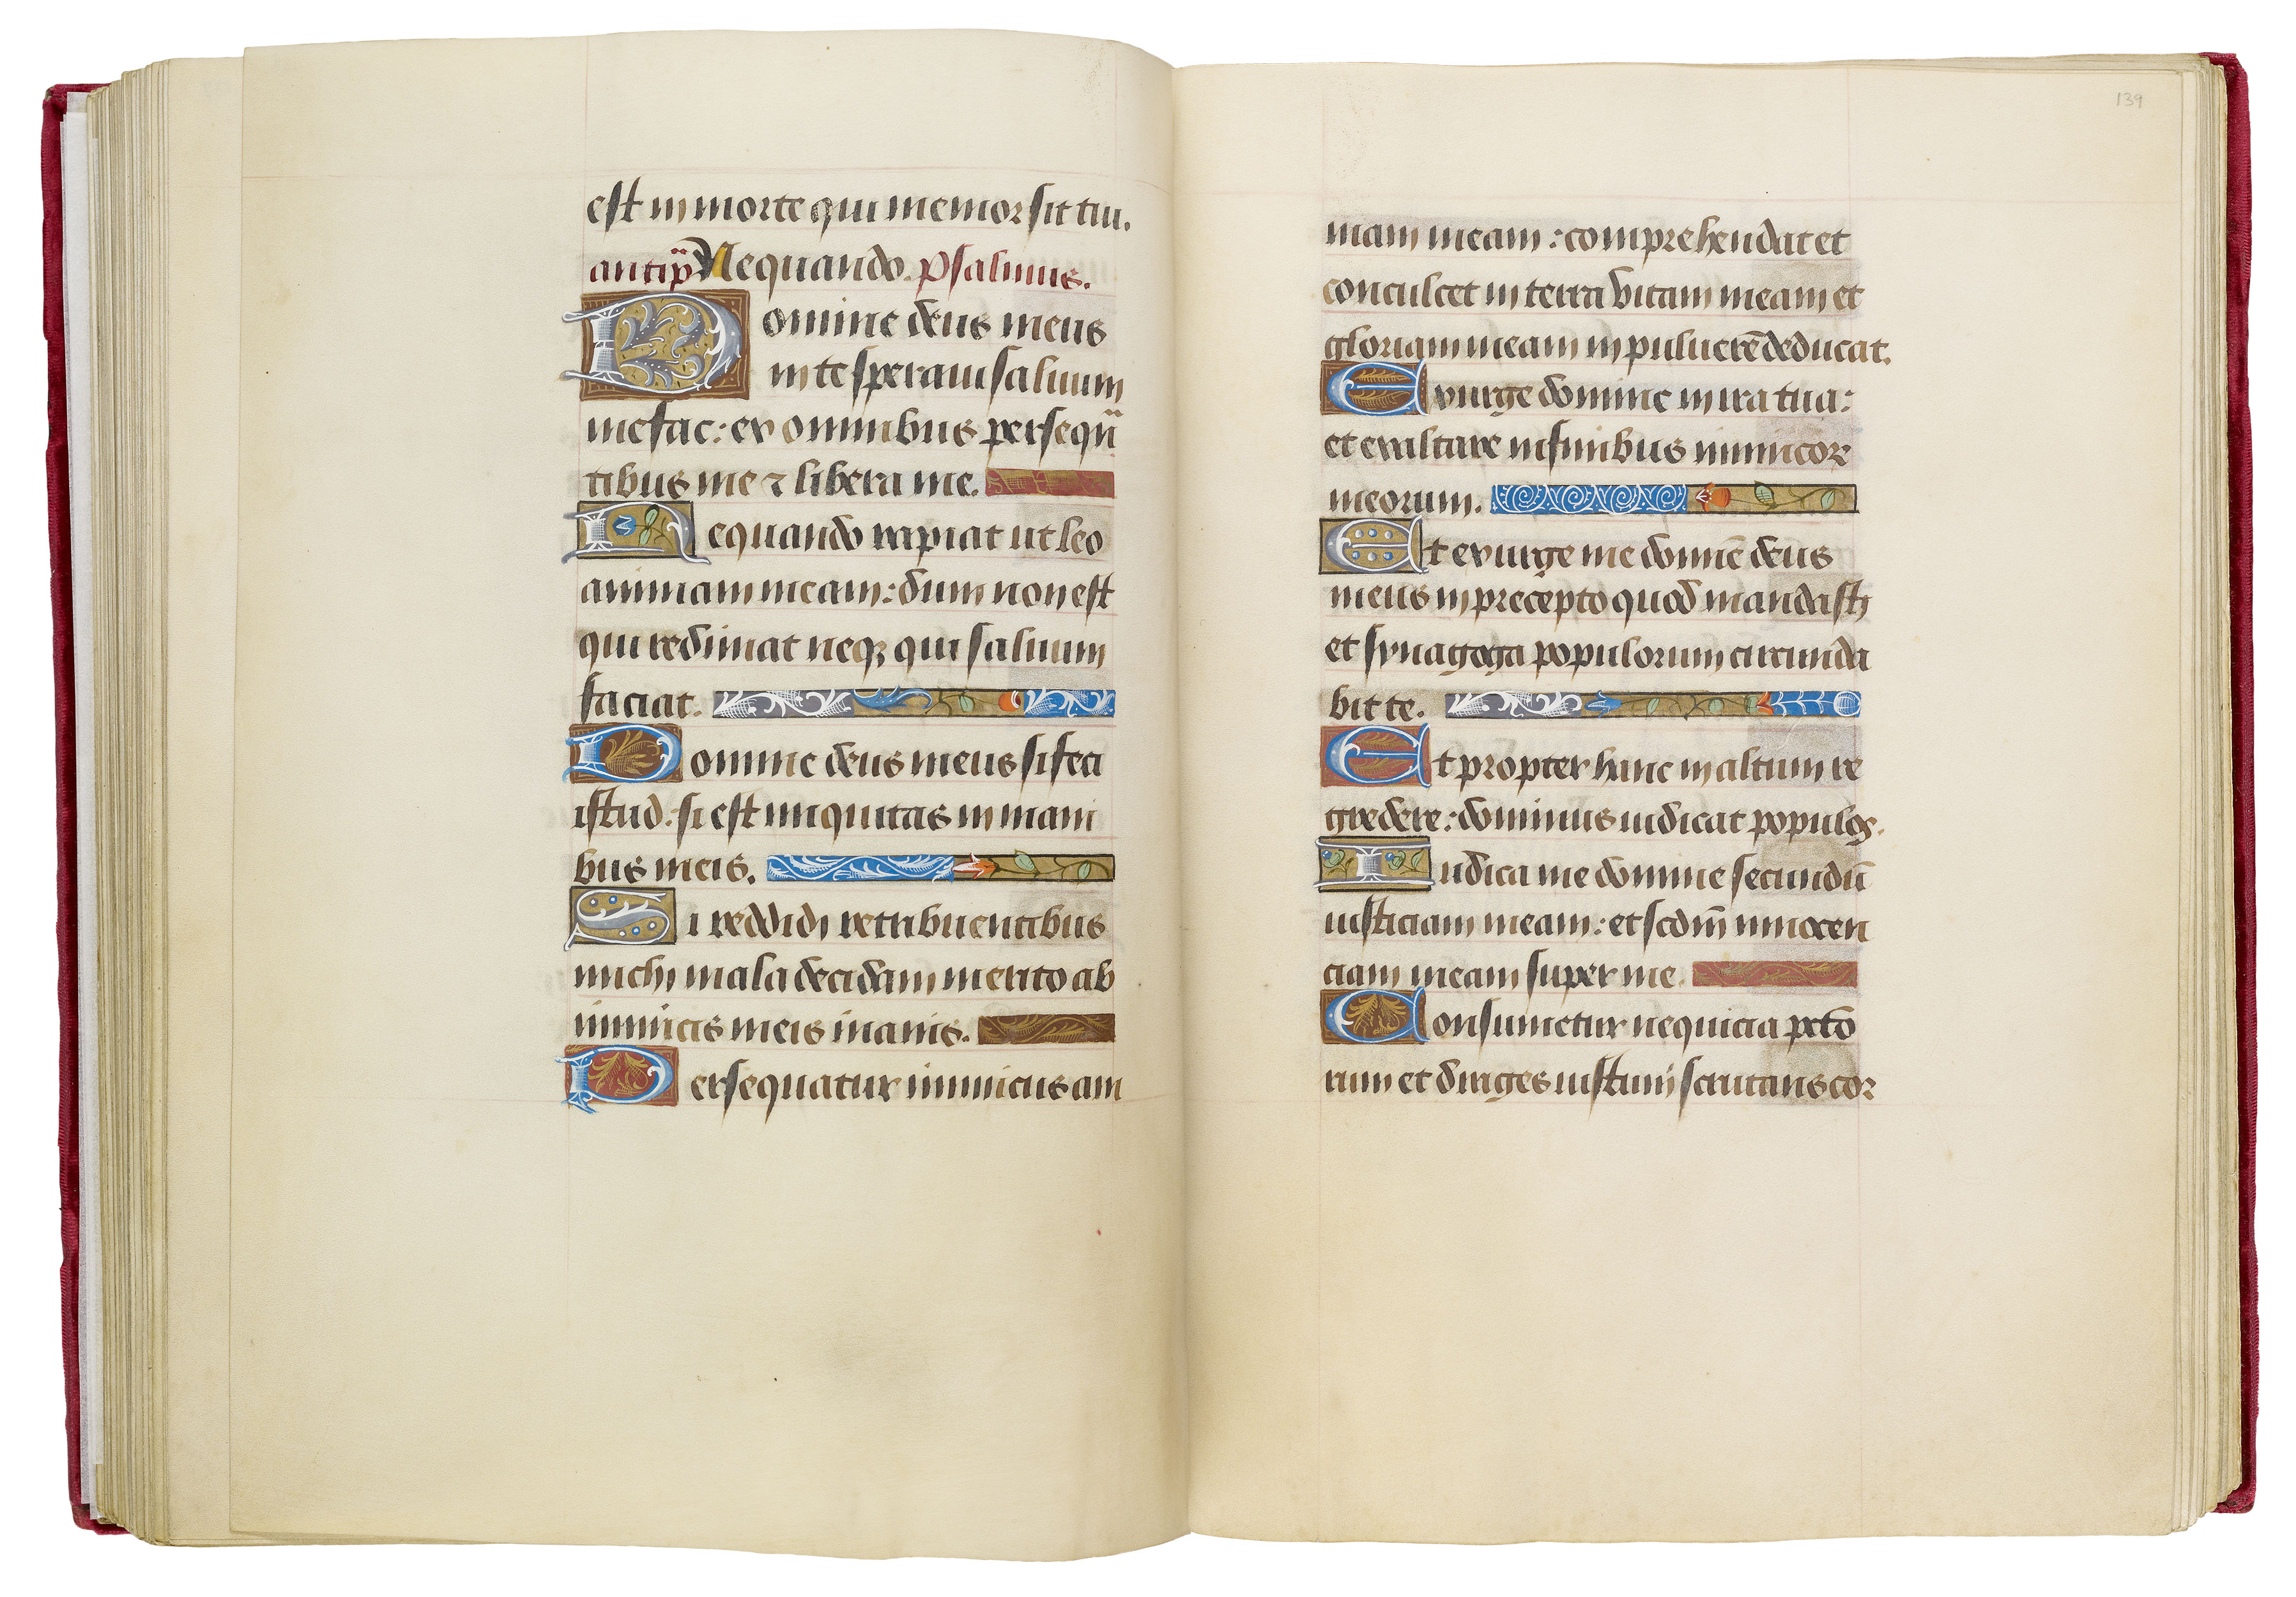 est in morte qui memor sit tui.
antiph̃ Ne quando. psalmus.
Domine deus meus
in te speraui saluum
me fac: ex omnibus persequẽ
tibus me ⁊ libera me.
Ne quando rapiat ut leo
animam meam: dum non est
qui redimat neqȝ qui saluum
faciat.
Domine deus meus si feci
istud. si est iniquitas in mani
bus meis.
Si reddidi retribuentibus
michi mala decidam merito ab
inimicis meis inanis.
Persequatur inimicus ani
139
mam meam: comprehendat et
conculcet in terra vitam meam et
gloriam meam in puluerẽ deducat.
Exurge domine in ira tua:
et exaltare in finibus inimicor
meorum.
Et exurge me dominẽ deus
meus in precepto quod mandasti
et synagoga populorum circunda
bit te.
Et propter hanc in altum re
gredere: dominus iudicat populos.
Iudica me domine secundũ
iusticiam meam: et scdm̃ innocen
ciam meam super me.
Consumetur nequicia pcto
rum et diriges iustum scrutans cor